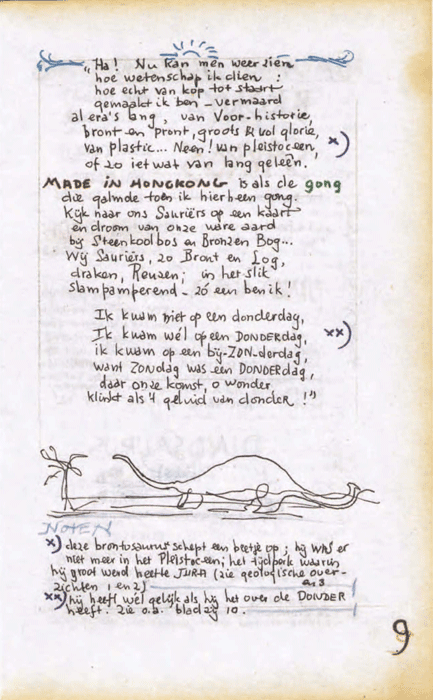 „Ha! Nu kan men weer zien
hoe wetenschap ik dien :
hoe echt van kop tot staart
gemaakt ik ben – vermaard
al era's lang, van Voor-historie,
bront en pront, groots & vol glorie,
van plastic... Neen! van pleistoceen, x)
of zo iet wat van lang geleên.
MADE IN HONGKONG is als de gong
die galmde toen ik hierheen gong.
Kijk naar ons Sauriërs op een kaart
en droom van onze ware aard
bij Steenkoolbos en Bronzen Bog...
Wij Sauriërs, zo Bront en Log,
draken, Reuzen; in het slik
slampamperend – zó een ben ik!
Ik kwam niet op een donderdag,
Ik kwam wél op een DONDERdag, xx)
ik kwam op een bij-ZON-derdag,
want ZONdag was een DONDERdag,
daar onze komst, o wonder
klinkt als 't geluid van donder!"
NOTEN
x) deze brontosaurus schept een beetje op; hij WAS er
niet meer in het Pleistoceen; het tijdperk waarin
hij groot werd heette JURA (zie geologische over-
zichten 1 en 2) en 3
xx) hij heeft wel gelijk als hij het over de DONDER
heeft. Zie o.a. bladzy 10.
9